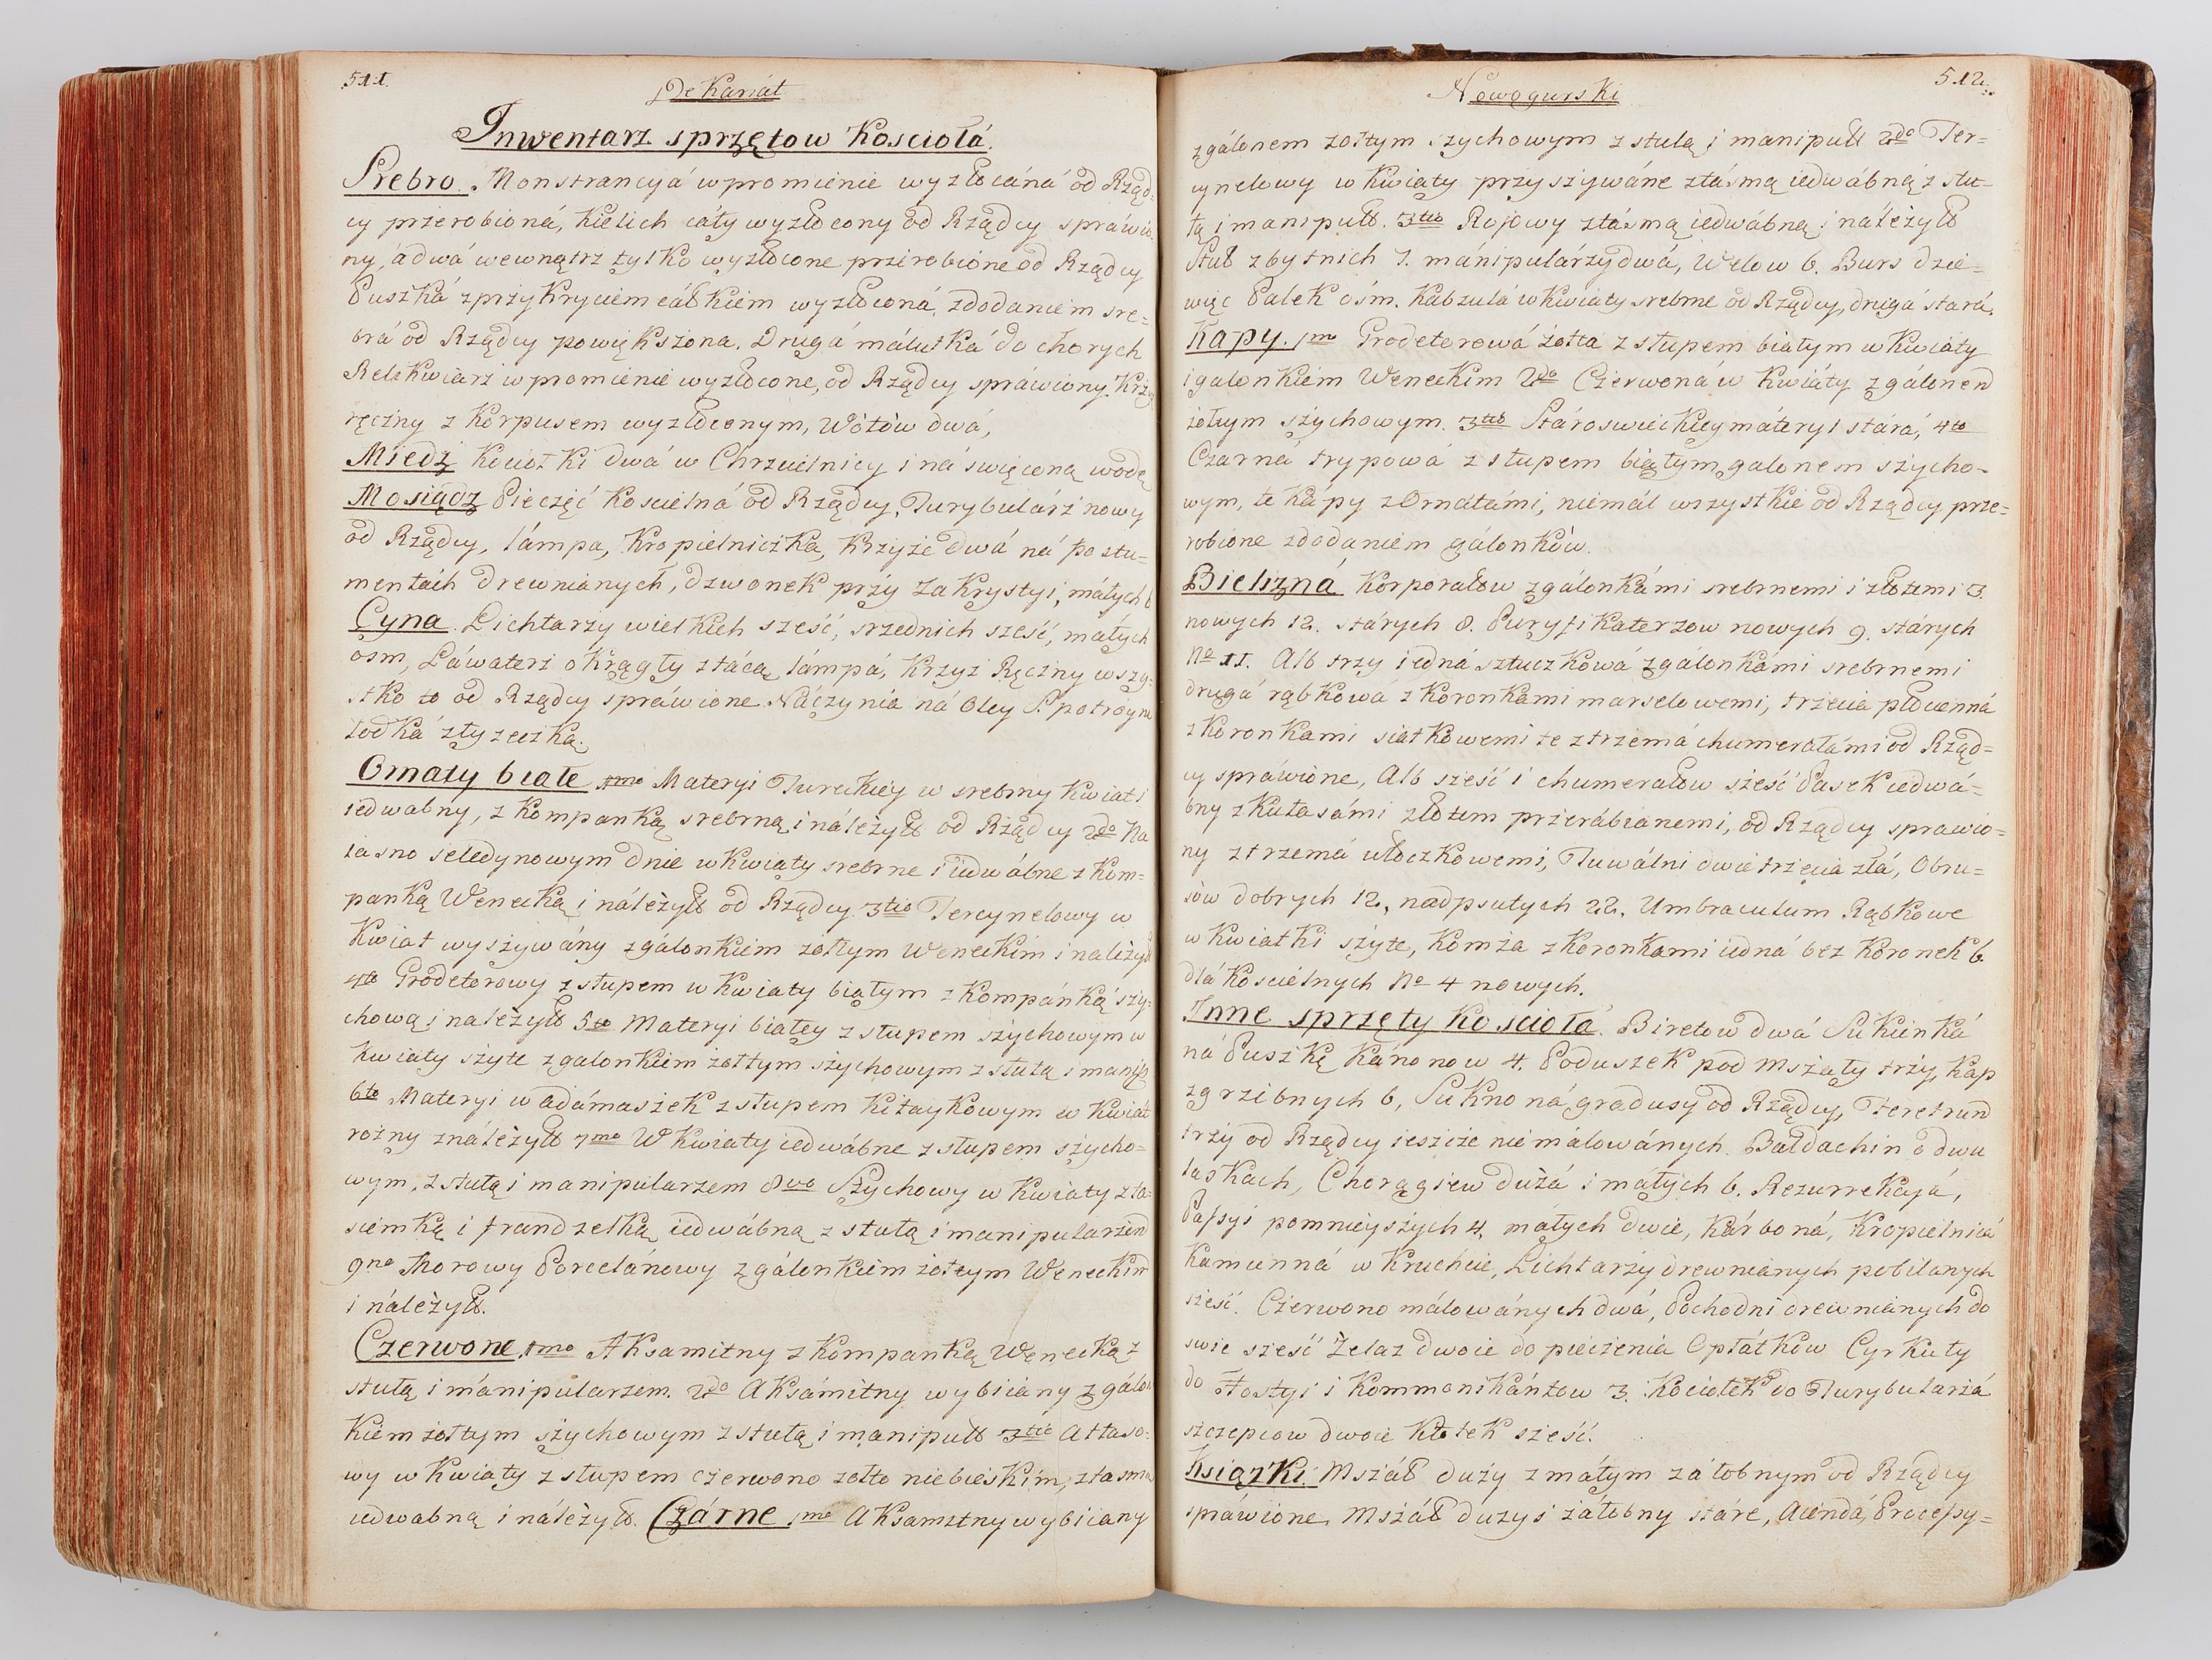 511.
Dekanát
Inwentarz sprzętow Kosciołá.
Srebro. Monstrancyá w promienie wyzłocáná od Rządz=
cy przerobioná, Kielich cáły wyzłocony od Rządcy spráwio
ny, á dwá wewnątrz tylko wyzłocone przerobione od Rządcy
Puszká z przykryciem cáłkiem wyzłoconá, z dodaniem sre=
brá od Rządcy powiększona. Drugá málutká do chorych
Relikwiarz w promienie wyzłocone, od Rządcy spráwiony. Krzyż
ręczny z Korpusem wyzłoconym, Wotów dwá,
Miedź Kociołki dwá w Chrzcielnicy i ná swięconą wodę
Mosiądz Pieczęć Koscielná od Rządcy, Turybulárz nowy
od Rządcy, lámpa, Kropielniczka, Krzyże dwá ná postu=
mentach drewnianych, dzwonek przy Zakrystyi, máłych 6
Cyna. Lichtarzy wielkich sześć, srzednich sześć, małych
osm, Láwaterz okrągły z tácą lámpá, Krzyż Ręczny wszy=
stko to od Rządcy spráwione. Náczynia ná Oley S. potroyne
łodká z łyzeczką.
Ornaty białe 1mo Materyi Tureckiey w srebrny kwiat i
iedwabny, z kompanką srebrną i náleżył od Rządcy 2do Na
iasno seledynowym dnie w kwiaty srebrne i iedwábne z kom=
panką Wenecką i náleżył od Rządcy 3tio Tercynelowy w
Kwiat wyszywány z gálonkiem żołtym Weneckim i należył
4to Grodetorowy z słupem w kwiaty białym z kompánką szy=
chową i należył 5to Materyi białey z słupem szychowym w
Kwiaty szyte z galonkiem żołtym szychowym z stułą i manip
6to Materyi w adámaszek z słupem kitaykowym w kwiat
rożny z náleżył 7mo W kwiaty iedwábne z słupem szycho=
wym, z stułą i manipularzem 8vo Szychowy w kwiaty z ta=
siemką i frandzelką iedwábną z stułą i manipularzem
9no Morowy Porcelánowy z gálonkiem żołtym Weneckim
i náleżył.
Czerwone. 1mo Aksamitny z kompanką Wenecką z
stułą i mánipularzem. 2do Aksámitny wybiiany z gálon
kiem żołtym szychowym z stułą i manipuł 3tio Atłaso=
wy w kwiaty z słupem czerwono żołto niebieskim, z tasmą
iedwabną i náleżył. Czárne 1mo Aksamitny wybiiany
512.
Nowogurski
z gálonem żołtym szychowym z stułą i manipuł 2do Ter=
cynelowy w kwiaty przyszywáne z tásmą iedwábną z stu=
łą i manipuł. 3tio Rojowy z tásmą iedwábną i náleżył
Stuł zbytnich 7. mánipulárzy dwá, Welow 6. Burs dzie=
więc Palek ośm. Kabzulá w kwiaty srebrne od Rządcy, drugá stará.
Kapy. 1mo Grodetorowá żołta z słupem białym w kwiaty
i galonkiem Weneckim 2do Czerwoná w kwiáty z gálonem
żołtym szychowym. 3tio Stároswieckiey máteryi stárá, 4to
Czarná trypowá z słupem białym galonem szycho=
wym, te kápy z Ornatámi, niemál wszystkie od Rządcy prze=
robione z dodaniem gálonków.
Bielizná Korporałow z gálonkámi srebrnemi i złotemi 3.
nowych 12. stárych 8. Puryfikaterzow nowych 9. stárych
No 11. Alb trzy iedná sztuczkowá z gálonkámi srebrnemi
drugá rąbkowá z koronkami marselowemi, trzecia płócienná
z koronkami siatkowemi te z trzemá chumerałámi od Rząd=
cy spráwione, Alb sześć i chumerałow sześć Pasek iedwá=
bny z kutasámi złotem przerábianemi, od Rządcy sprawio=
ny z trzemá włoczkowemi, Tuwálni dwie trzecia złá, Obru=
sów dobrych 12, nadpsutych 22. Umbraculum Rąbkowe
w kwiatki szyte, Komża z koronkami iedná bez koronek 6.
dlá koscielnych No 4 nowych.
Inne sprzęty Kosciołá. Biretow dwá Sukienká
ná Puszkę Kánonow 4. Poduszek pod Mszały trzy, Kap
zgrzibnych 6, Sukno ná gradusy od Rządcy, Feretrum
trzy od Rządcy ieszcze niemálowánych. Baldachin o dwu
laskach, Chorągiew dużá i máłych 6. Rezurrekcyá,
Passyi pomnieyszych 4, małych dwie, Kárboná, Kropielnicá
Kamienná w Kruchcie, Lichtarzy drewnianych pobilanych
sześć. Czerwono málowánych dwá, Pochodni drewnianych do
swic sześć Żelaz dwoie do pieczenia Opłátków Cyrkuły
do Hostyi i Kommonikántow 3. Kociołek do Turybularzá
szczepcow dwoie Kłotek sześć.
Ksiązki. Mszáł duży z máłym záłobnym od Rządcy
spráwione, Mszáł duzy i záłobny stáre, Aiendá, Processy=